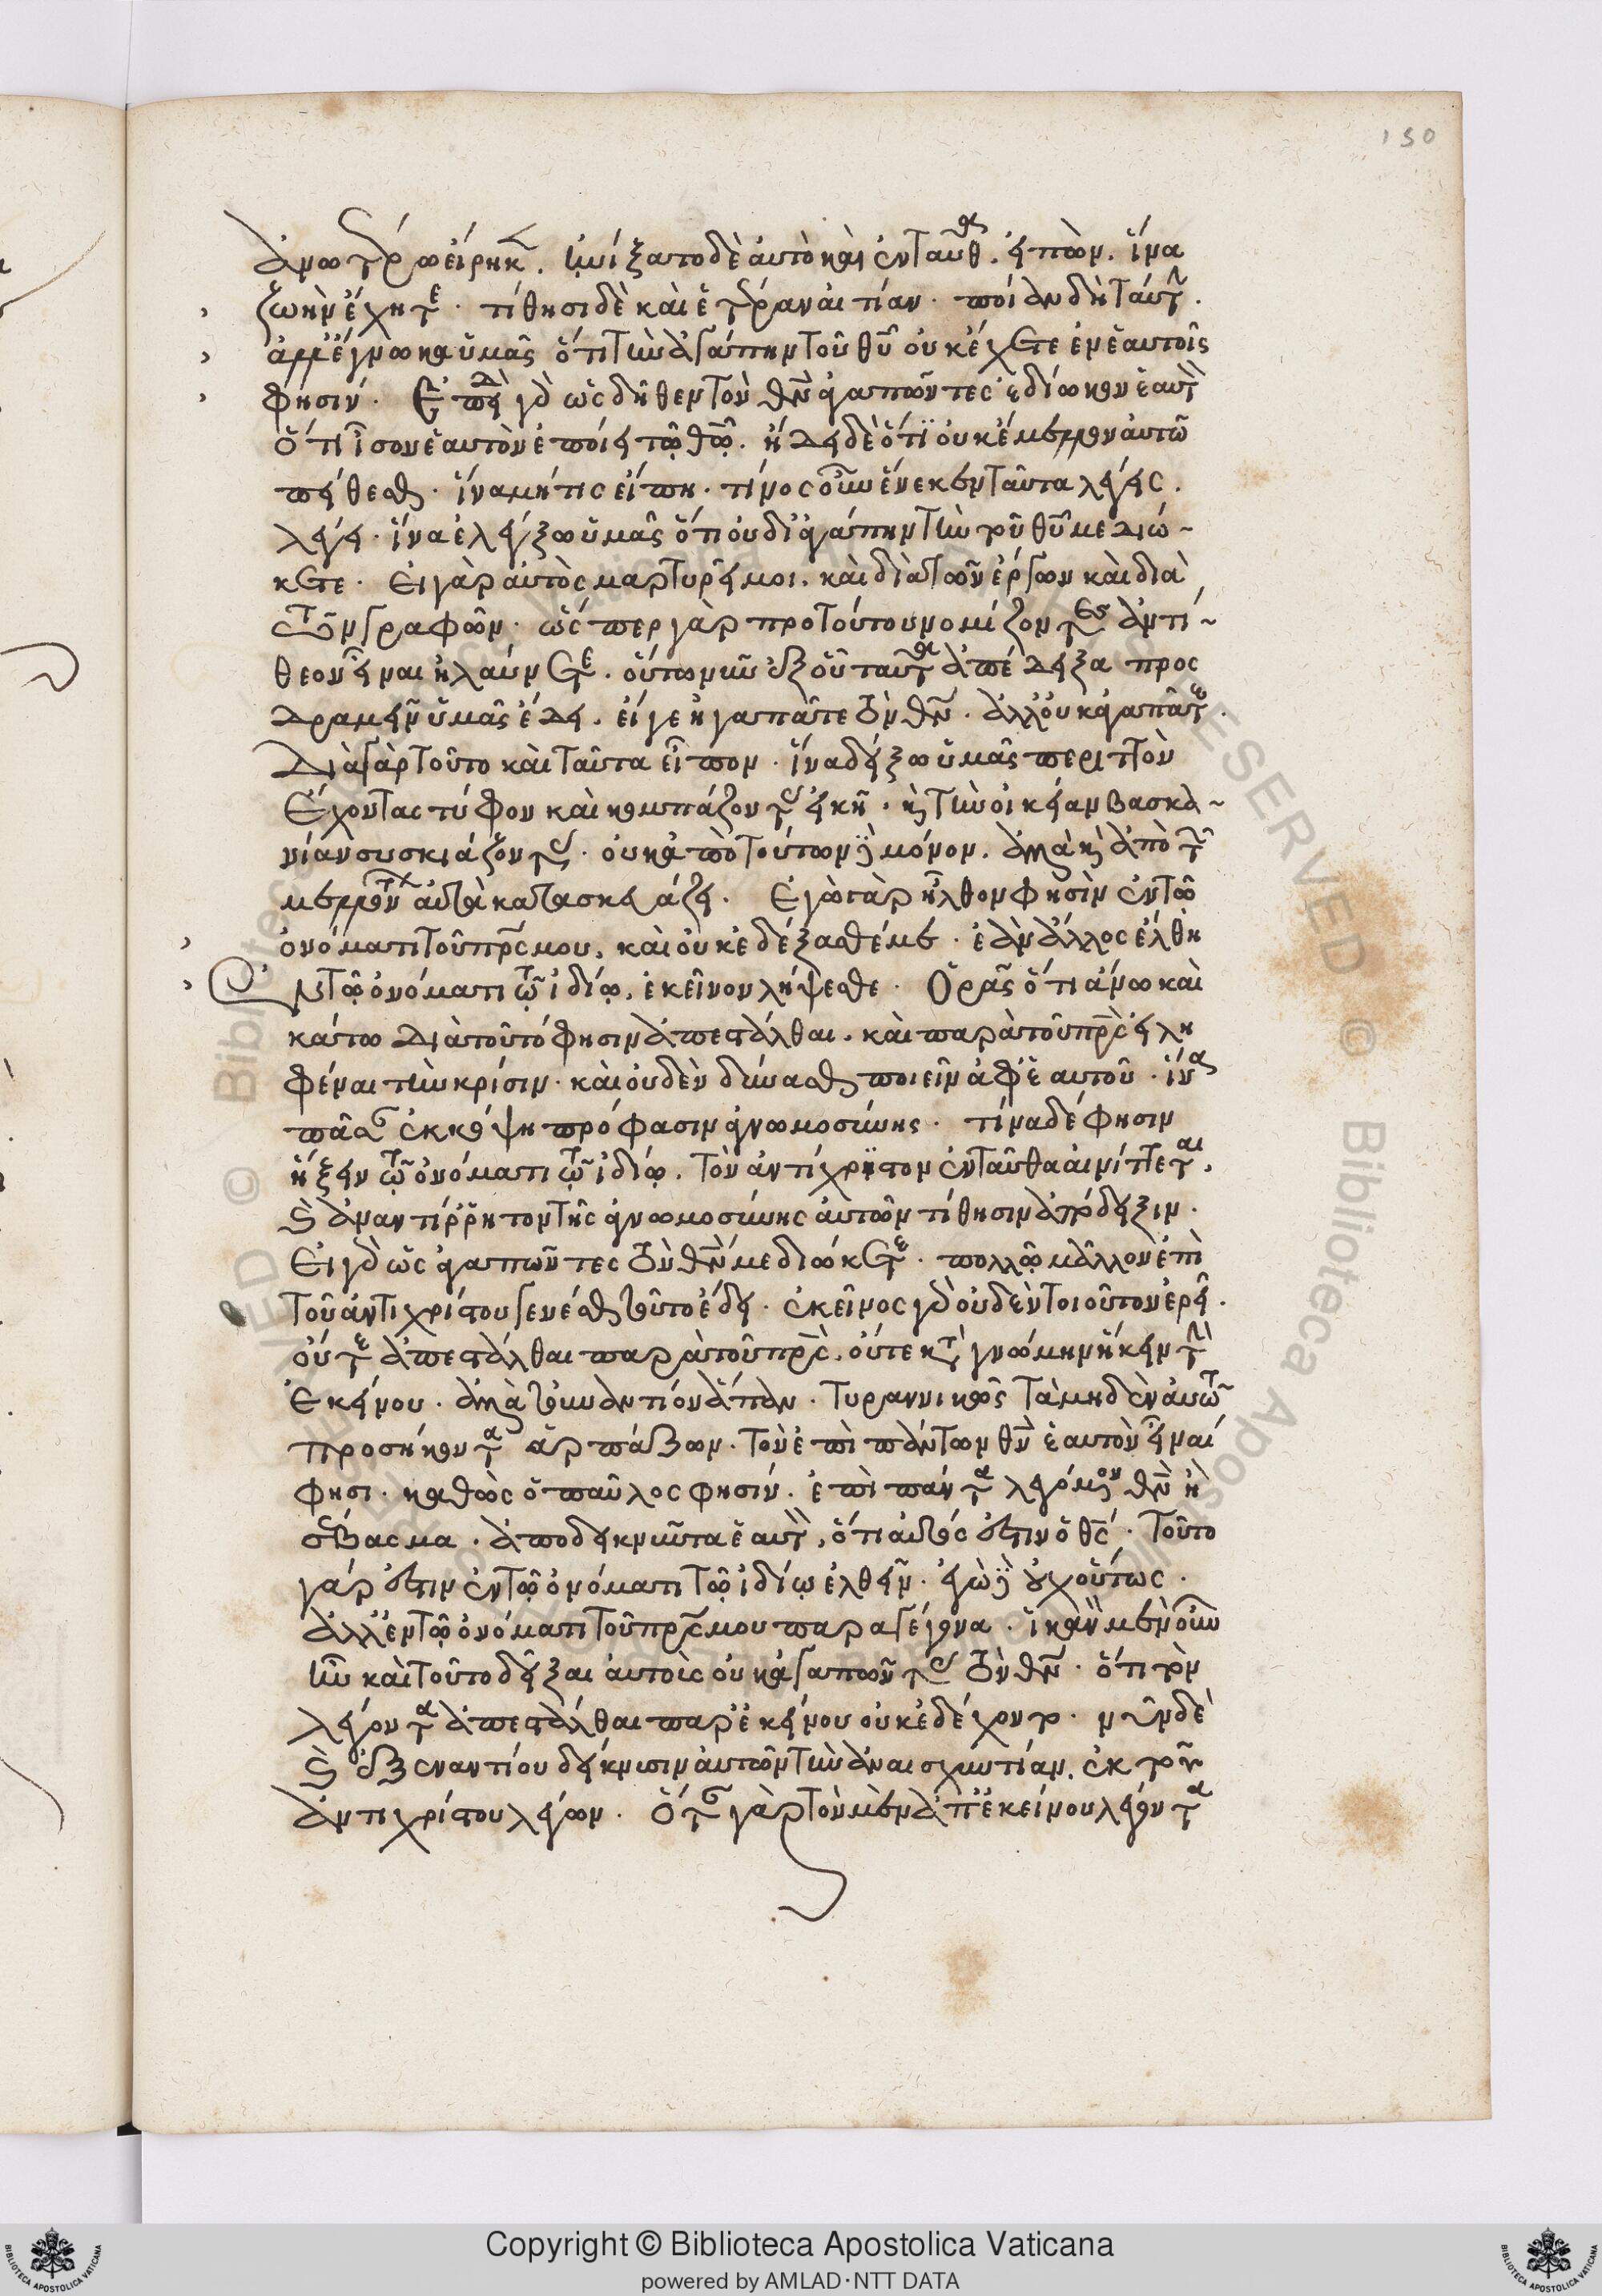 150
ἀνωτέρω εἴρηκε. ἠνίξατο δὲ αὐτὸ καὶ ἐνταῦθα, εἰπὼν, ἵνα
ζωὴν ἔχητε. τίθησι δὲ καὶ ἑτέραν αἰτίαν. ποίαν δὴ ταύτην.
ἀλλ' ἔγνωκα ὑμᾶς ὅτι τὴν ἀγάπην τοῦ θυ οὐκ ἔχετε ἐν ἑαυτοῖς
φησίν. Ἐπειδὴ γὰρ ὡς δῆθεν τὸν θν ἀγαπῶντες ἐδίωκον αὐτὸν
ὅτι ἴσον ἑαυτὸν ἐποίει τῷ θῷ. ᾔδει δὲ ὅτι οὐκ ἔμελλον αὐτῷ
πείθεσθαι. ἵνα μή τις εἴπῃ. τίνος οὖν ἕνεκεν ταῦτα λέγεις.
λέγει. ἵνα ἐλέγξω ὑμᾶς ὅτι οὐ δι' ἀγάπην τὴν τοῦ θυ με διώ-
κετε. Εἴγε αὐτὸς μαρτυρεῖ μοι. καὶ διὰ τῶν ἔργων καὶ διὰ
τῶν γραφῶν. ὥσπερ γὰρ πρὸ τούτου νομίζοντες ἀντί-
θεον εἶναι ἠλαύνετε. οὕτω νῦν ἐξ οὗ ταῦτα ἀπέδειξα προσ
δραμεῖν ὑμᾶς ἔδει. εἴγε ἠγαπᾶτε τὸν θν. ἀλλ' οὐκ ἀγαπᾶτε.
Διὰ γὰρ τοῦτο καὶ ταῦτα εἶπον. ἵνα δείξω ὑμᾶς περιττὸν
ἔχοντας τύφον καὶ κομπάζοντας εἰκῆ. καὶ τὴν οἰκείαν βασκα-
νίαν συσκιάζοντας. οὐκ ἀπὸ τούτων δὲ μόνον. ἀλλὰ καὶ ἀπὸ τῶν
μελλόντων αὐτὰ κατασκευάζει. Ἐγὼ γὰρ ἦλθον φησὶν ἐν τῷ
ὀνόματι τοῦ πρς μου, καὶ οὐκ ἐδέξασθέ με. ἐὰν ἄλλος ἔλθῃ
ἐν τῷ ὀνόματι τῷ ἰδίῳ, ἐκεῖνον λήψεσθε. Ὁρᾶς ὅτι ἄνω καὶ
κάτω διὰ τοῦτό φησιν ἀπεστάλθαι. καὶ παρὰ τοῦ πρς εἰλη
φέναι τὴν κρίσιν. καὶ οὐδὲν δύνασθαι ποιεῖν ἀφ' ἑαυτοῦ. ἵνα
πᾶσαν ἐκκόψῃ πρόφασιν ἀγνωμοσύνης. τίνα δέ φησιν
ἥξειν τῷ ὀνόματι τῷ ἰδίῳ. τὸν ἀντίχριστον ἐνταῦθα αἰνίττεται.
καὶ ἀναντίρρητον τῆς ἀγνωμοσύνης αὐτῶν τίθησιν ἀπόδειξιν.
Εἰ γὰρ ὡς ἀγαπῶντες τὸν θν με διώκετε. πολλῷ μᾶλλον ἐπὶ
τοῦ ἀντιχρίστου γενέσθαι τοῦτο ἔδει. ἐκεῖνος γὰρ οὐδὲν τοιοῦτον ἐρεῖ.
οὔτε ἀπεστάλθαι παρὰ τοῦ πρς, οὔτε κατὰ γνώμην ἥκειν τὴν
ἐκείνου. ἀλλὰ τοὐναντίον ἅπαν. τυραννικῶς τὰ μηδὲν αὐτῷ
προσήκοντα ἁρπάζων. τὸν ἐπὶ πάντων θν ἑαυτὸν εἶναί
φησι. καθὼς ὁ παῦλος φησίν. ἐπὶ πάντα λεγόμενον θν ἢ
σέβασμα. ἀποδεικνύντα ἑαυτὸν, ὅτι αὐτός ἐστιν ὁ θς. Τοῦτο
γάρ ἐστιν ἐν τῷ ὀνόματι τῷ ἰδίῳ ἐλθεῖν. ἐγὼ δὲ οὐχ οὕτως.
ἀλλ' ἐν τῷ ὀνόματι τοῦ πρς μου παραγέγονα. ἱκανὸν μὲν οὖν
ἦν καὶ τοῦτο δεῖξαι αὐτοὺς οὐκ ἀγαπῶντας τὸν θν. ὅτι τὸν
λέγοντα ἀπεστάλθαι παρ' ἐκείνου οὐκ ἐδέχοντο. νῦν δὲ
καὶ ἐξ ἐναντίου δείκνυσιν αὐτῶν τὴν ἀναισχυντίαν. ἐκ τοῦ
ἀντιχρίστου λέγων. Ὅταν γὰρ τὸν μὲν ἀπ' ἐκείνου λέγοντα
Copyright © Biblioteca Apostolica Vaticana
powered by AMLAD·NTT DATA